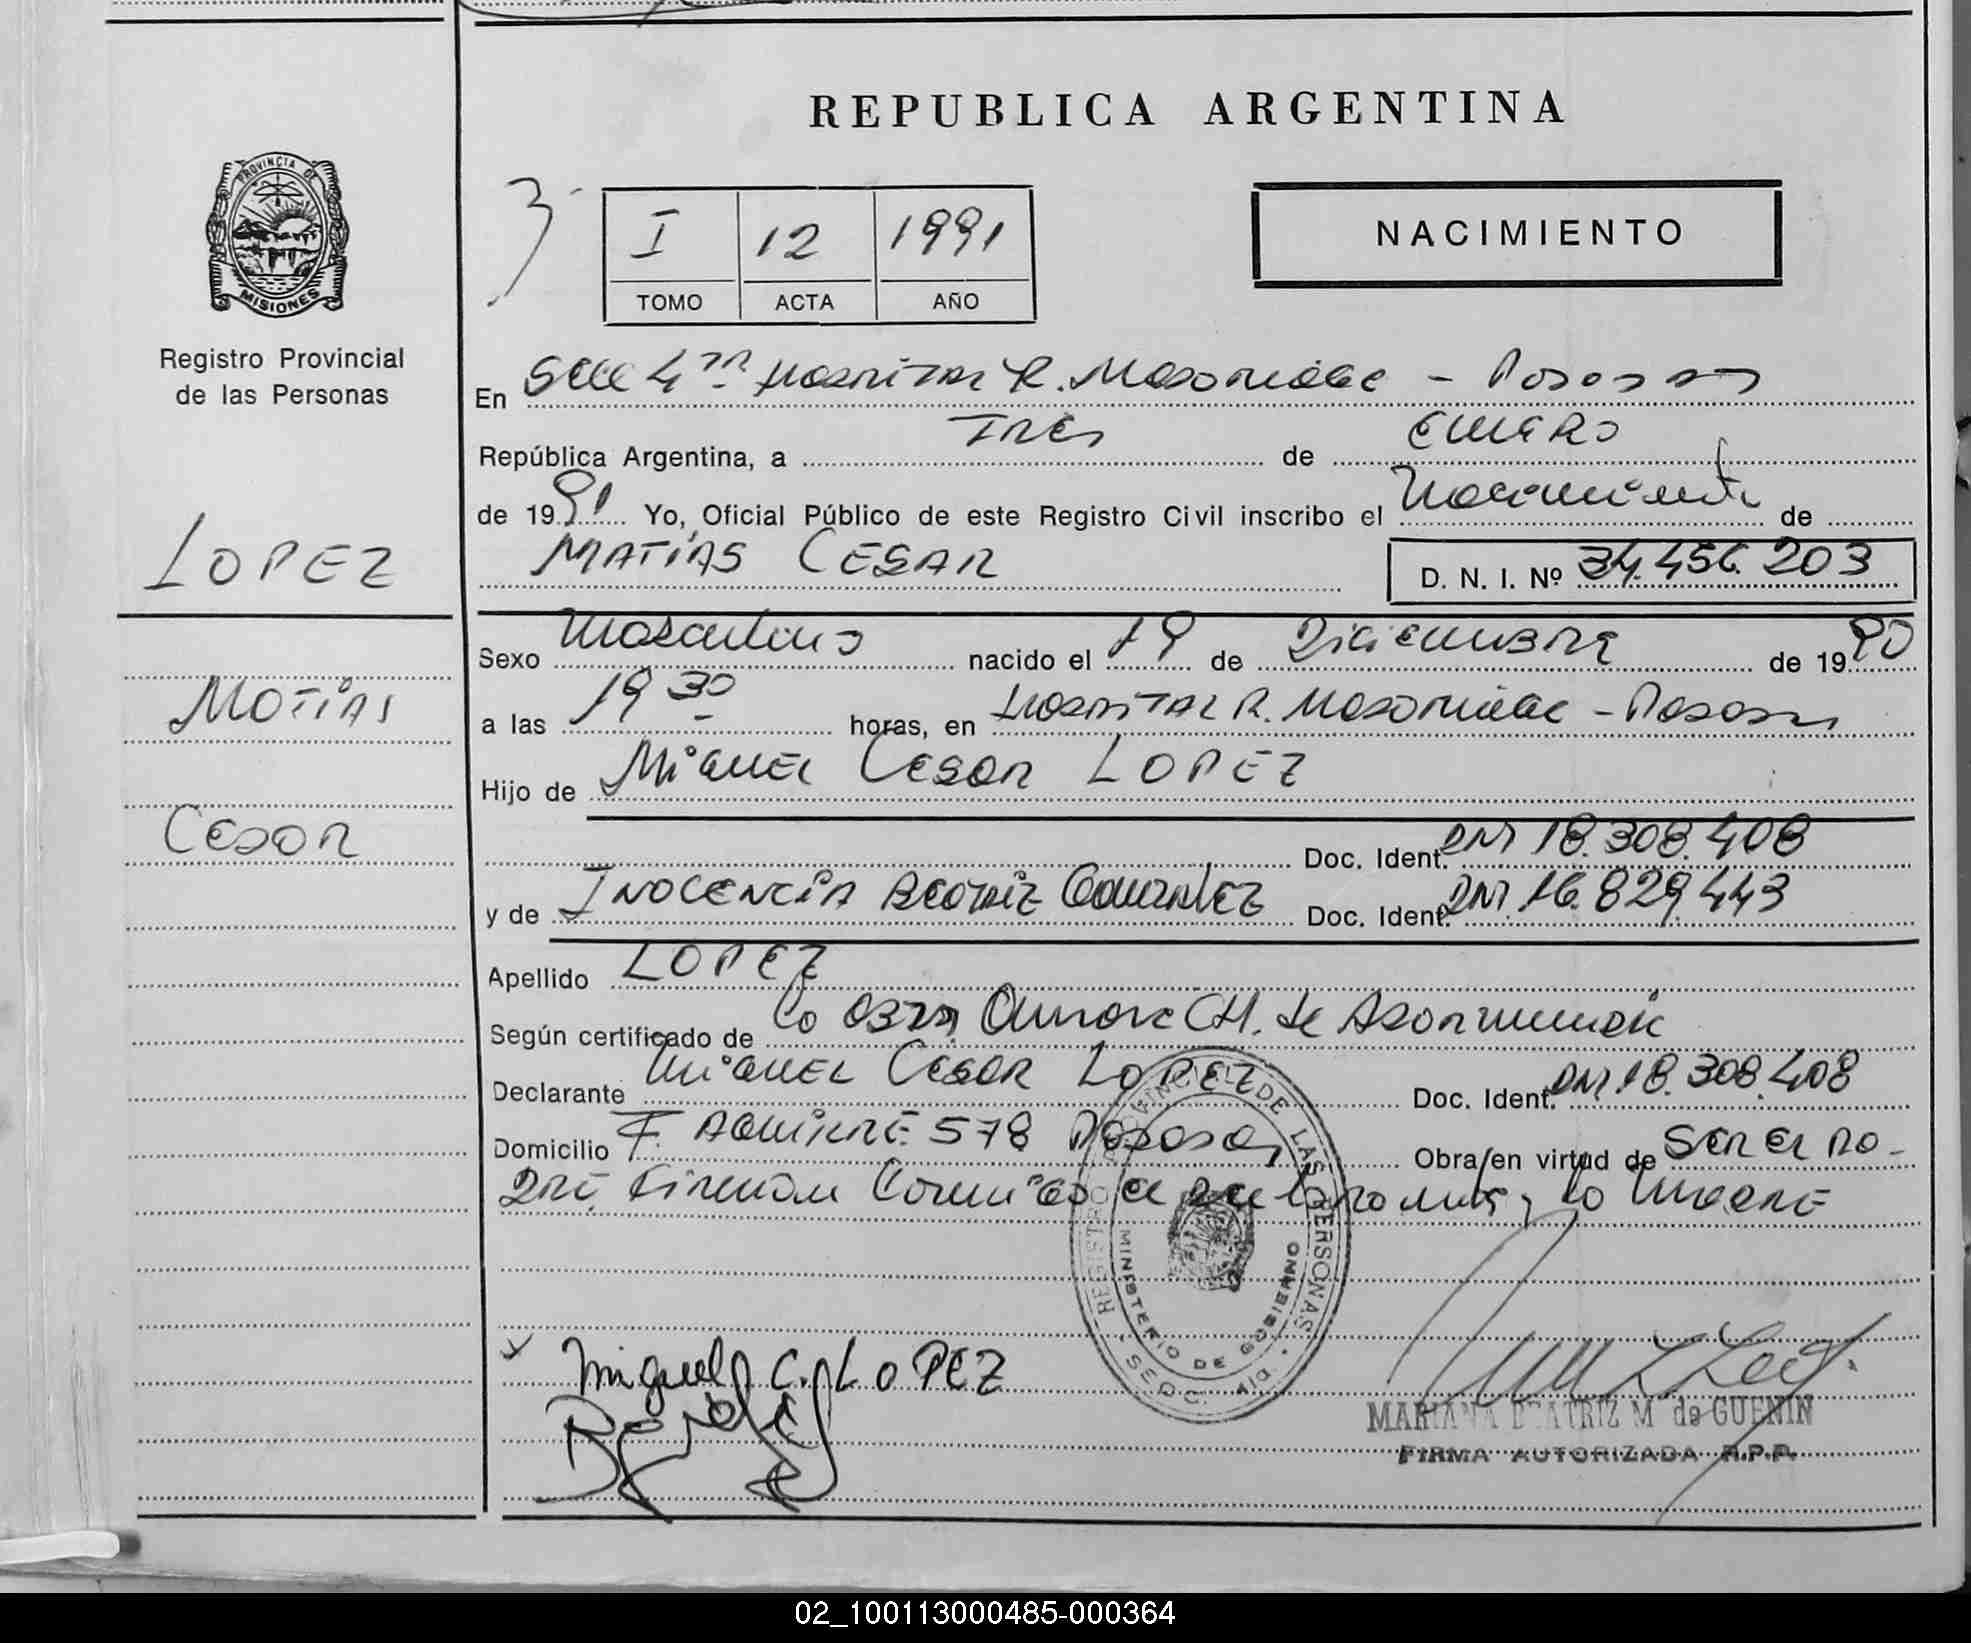 REPUBLICA ARGENTINA
PROVINCIA DE
MISIONES
Registro Provincial
de las Personas
3
I 12 1991
TOMO ACTA AÑO
NACIMIENTO
En Secc 4ª Hospital R. Madariaga - Posadas
República Argentina, a Tres de Enero
de 1991 Yo, Oficial Público de este Registro Civil inscribo el Nacimiento de
MATIAS CESAR D. N. I. Nº 34.456.203
LOPEZ
Matias
Cesar
Sexo Masculino nacido el 19 de Diciembre de 1990
a las 19 30 horas, en Hospital R. Madariaga - Posadas
Hijo de Miguel Cesar LOPEZ
Doc. Ident. DNI 18.308.408
y de Inocencia Beatriz Gonzalez Doc. Ident. DNI 16.829.443
Apellido LOPEZ
Según certificado de la Obst. CH. de
Declarante Miguel Cesar Lopez Doc. Ident. DNI 18.308.408
Domicilio F. Aguirre 578 Posadas Obra en virtud de Ser el pa-
dre, Firman la madre
REGISTRO PROVINCIAL DE LAS PERSONAS
MINISTERIO DE GOBIERNO
Miguel C. LOPEZ
MARIANA BEATRIZ M de GUENIN
FIRMA AUTORIZADA R.P.P.
02_100113000485-000364